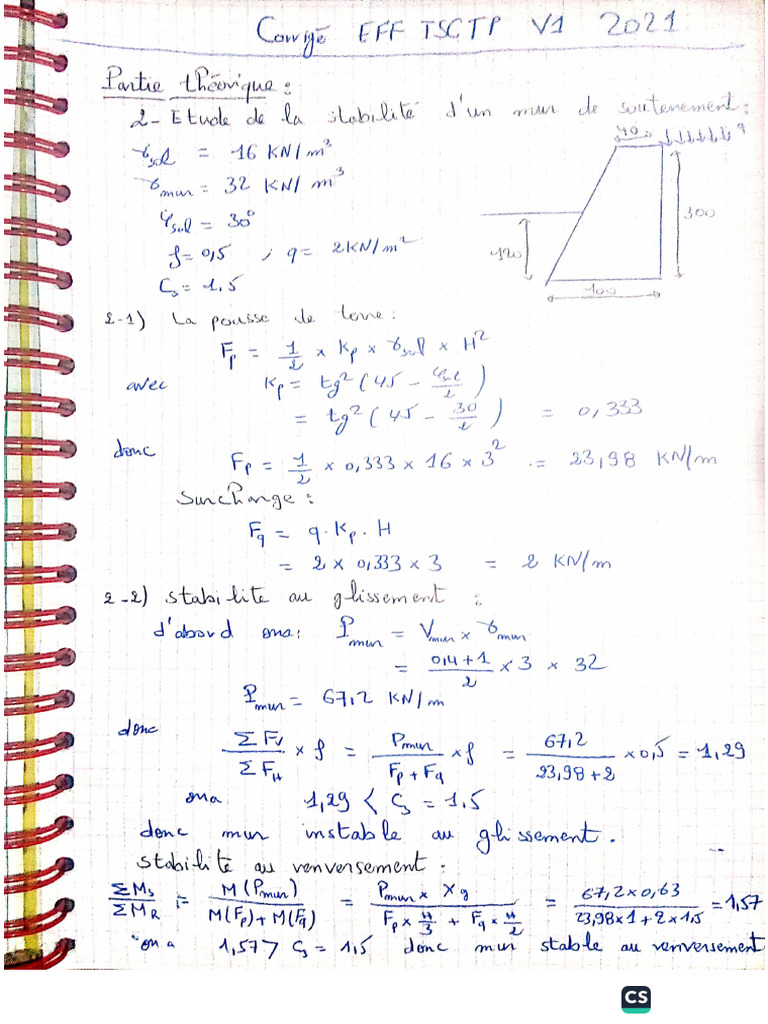 Corrigé EFF TSCTP V1 2021
Partie théorique :
2- Etude de la stabilité d'un mur de soutenement :
γsol = 16 KN/m³
γmur = 32 KN/m³
φsol = 30°
f = 0,5 ; q = 2KN/m²
Cs = 1.5
40
q
300
120
100
2-1) La pousse de terre :
Fp = 1/2 × Kp × γsol × H²
avec Kp = tg² (45 - φsol/2)
= tg² (45 - 30/2) = 0,333
donc Fp = 1/2 × 0,333 × 16 × 3² = 23,98 KN/m
Surcharge :
Fq = q . Kp . H
= 2 × 0,333 × 3 = 2 KN/m
2-2) stabilité au glissement :
d'abord ona : Pmur = Vmur × γmur
= (0,4+1)/2 × 3 × 32
Pmur = 67,2 KN/m
donc ΣFV/ΣFH × f = Pmur/(Fp+Fq) × f = 67,2/(23,98+2) × 0,5 = 1,29
ona 1,29 < Cs = 1.5
donc mur instable au glissement.
stabilité au renversement :
ΣMS/ΣMR = M(Pmur)/(M(Fp)+M(Fq)) = Pmur × Xg/(Fp × H/3 + Fq × H/2) = 67,2×0,63/(23,98×1+2×1,5) = 1,57
ona 1,57 > Cs = 1,5 donc mur stable au renversement
CS